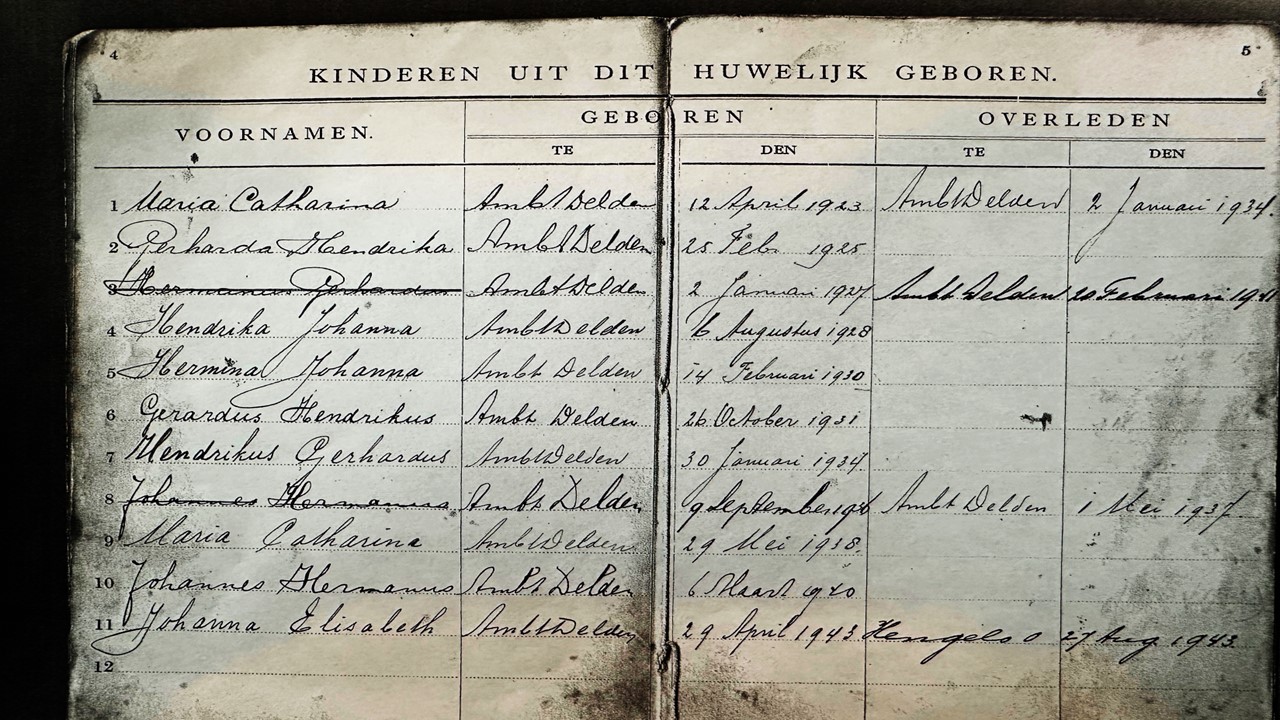 4 5
KINDEREN UIT DIT HUWELIJK GEBOREN.
VOORNAMEN. GEBOREN OVERLEDEN
TE DEN TE DEN
1 Maria Catharina Ambt Delden 12 April 1923 Ambt Delden 2 Januari 1934.
2 Gerharda Hendrika Ambt Delden 25 Feb. 1925
3 Hermanus Gerhardus Ambt Delden 2 Januari 1927 Ambt Delden 20 Februari
4 Hendrika Johanna Ambt Delden 6 Augustus 1928
5 Hermina Johanna Ambt Delden 14 Februari 1930
6 Gerardus Hendrikus Ambt Delden 26 October 1931
7 Hendrikus Gerhardus Ambt Delden 30 Januari 1934
8 Johannes Hermanus Ambt Delden 9 September Ambt Delden 1 Mei 1937.
9 Maria Catharina Ambt Delden 29 Mei 1938.
10 Johannes Hermanus Ambt Delden 6 Maart 1940
11 Johanna Elisabeth Ambt Delden 29 April 1943 Hengelo O 27 Aug 1943.
12